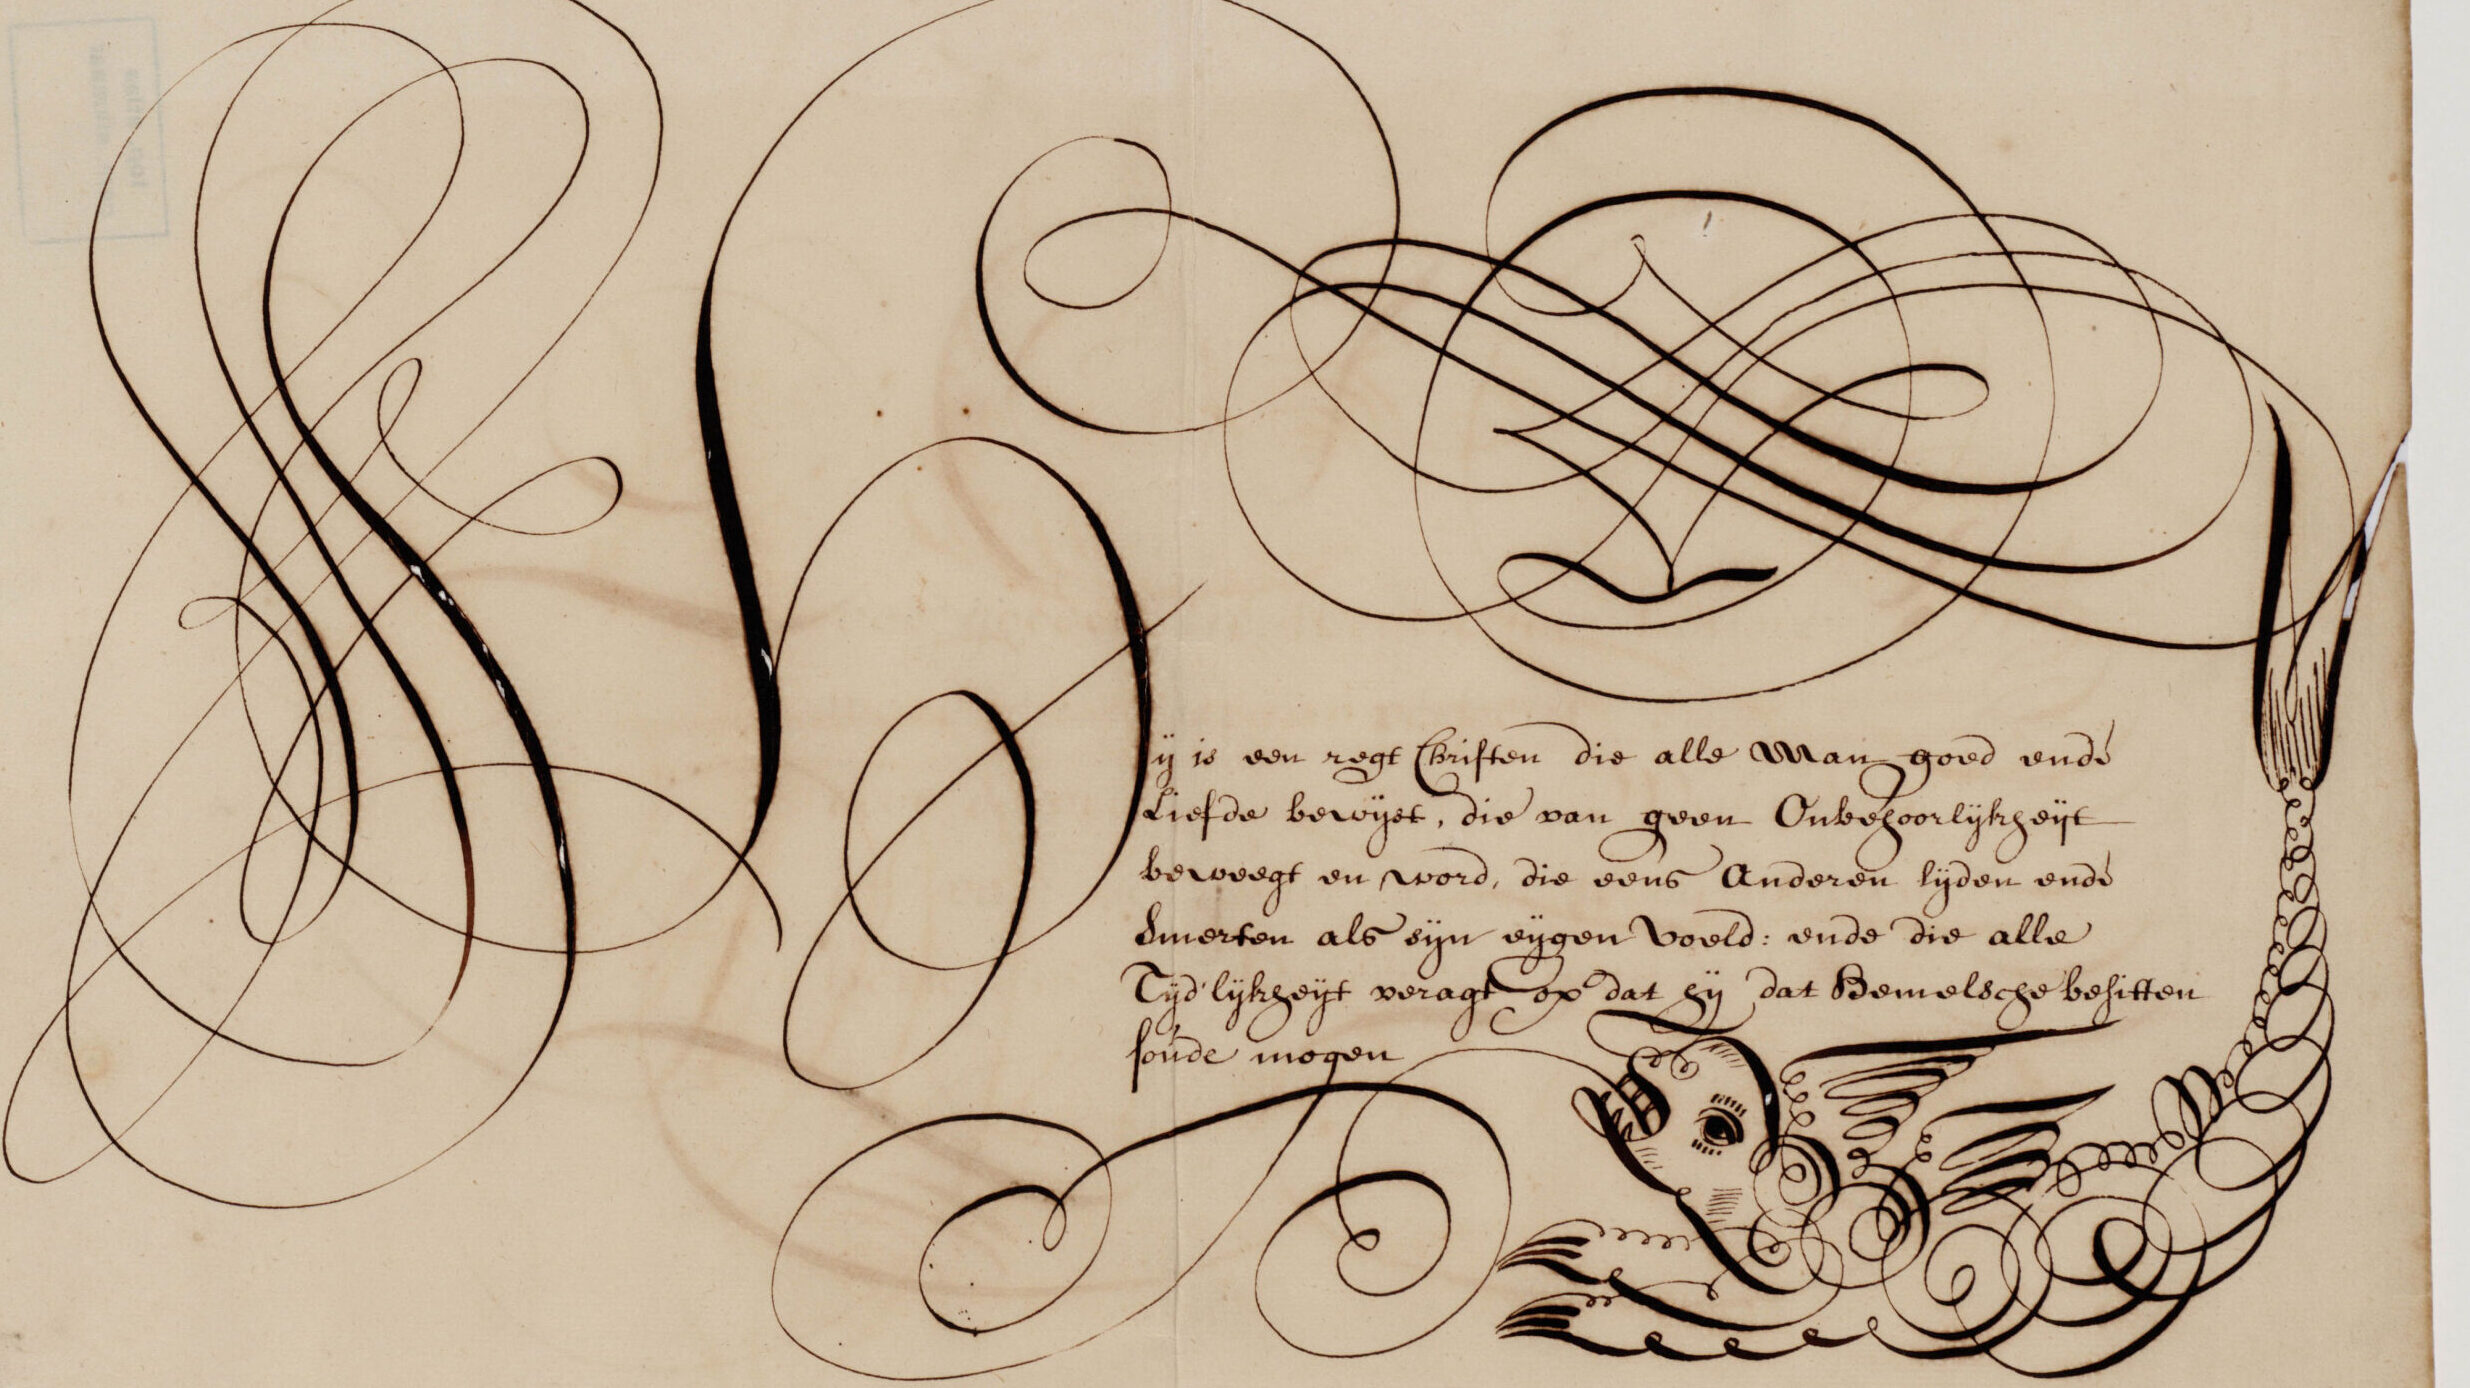 Hÿ is een regt Christen die alle Man goed ende
Liefde bewÿst, die van geen Onbehoorlÿkheÿt
beweegt en word, die eens Anderen lÿden ende
Smerten als sÿn eÿgen Voeld: ende die alle
Tÿdlÿkheÿt veragt op dat hÿ dat Hemelsche besitten
soude mogen